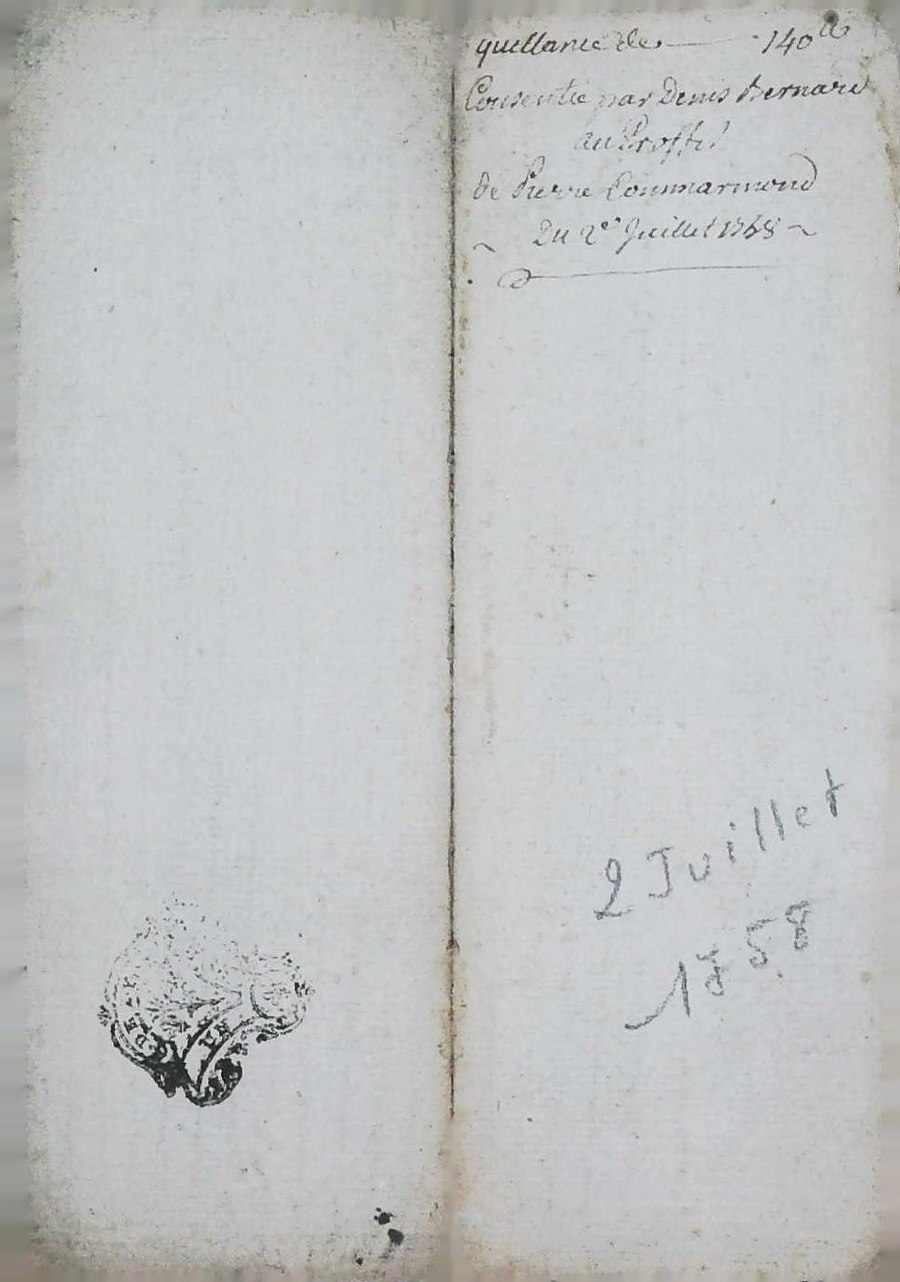 quittance de 140ᵗᵗ
Consentie par Denis Bernard
au Proffit
De Pierre Commarmond
Du 2e Juillet 1768
2 Juillet
1768